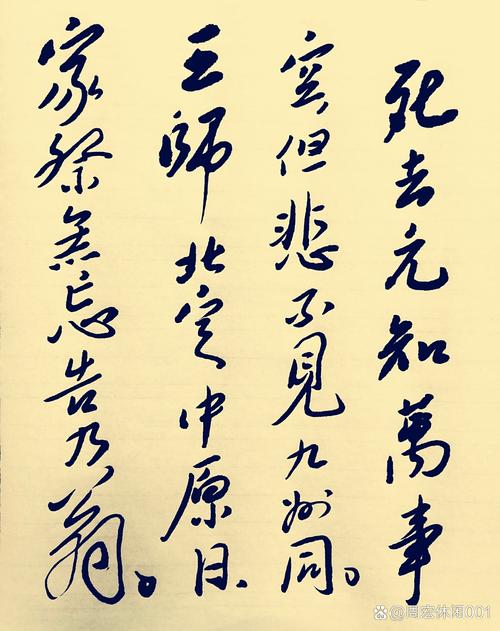 死去元知萬事
空但悲不見九州同。
王師北定中原日.
家祭無忘告乃翁。
@周宏休闲001